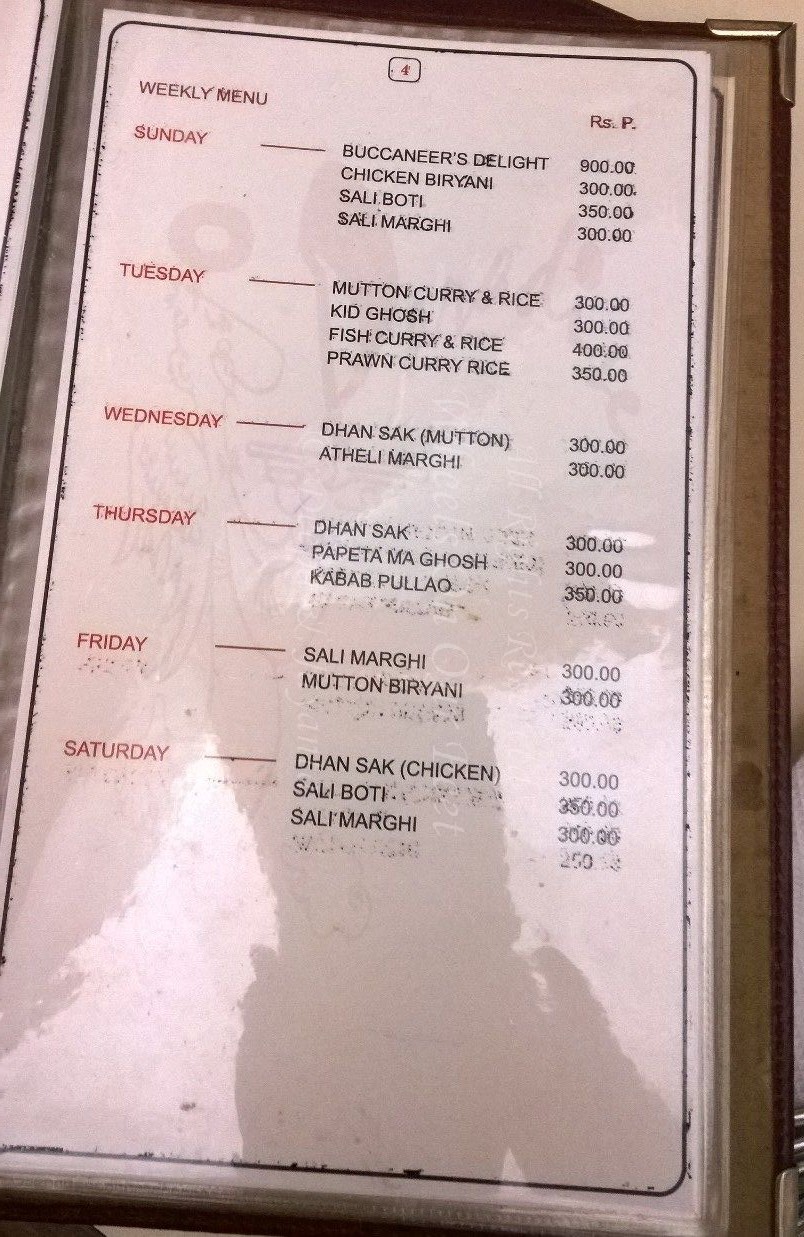 4
WEEKLY MENU
Rs. P.
SUNDAY BUCCANEER'S DELIGHT 900.00
CHICKEN BIRYANI 300.00
SALI BOTI 350.00
SALI MARGHI 300.00
TUESDAY MUTTON CURRY & RICE 300.00
KID GHOSH 300.00
FISH CURRY & RICE 400.00
PRAWN CURRY RICE 350.00
WEDNESDAY DHAN SAK (MUTTON) 300.00
ATHELI MARGHI 300.00
THURSDAY DHAN SAK 300.00
PAPETA MA GHOSH 300.00
KABAB PULLAO 350.00
FRIDAY SALI MARGHI 300.00
MUTTON BIRYANI 300.00
SATURDAY DHAN SAK (CHICKEN) 300.00
SALI BOTI 350.00
SALI MARGHI 300.00